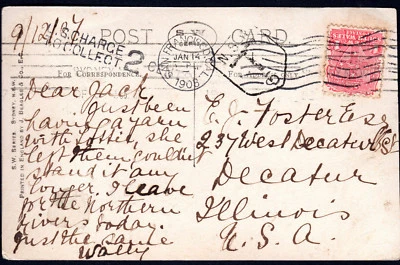 9/12/07
U.S. CHARGE
TO COLLECT
2
POST CARD
JAN 14
1908
N.S.W.
T
FOR CORRESPONDENCE.
Dear Jack,
Just been
having a yarn
with Lottie, she
left them couldnt
stand it any
longer. I leave
for the Northern
rivers today.
Just the same
Wally
E. J. Foster Esq
237 West Decatur St
Decatur
Illinois
U.S.A.
PRINTED IN ENGLAND BY